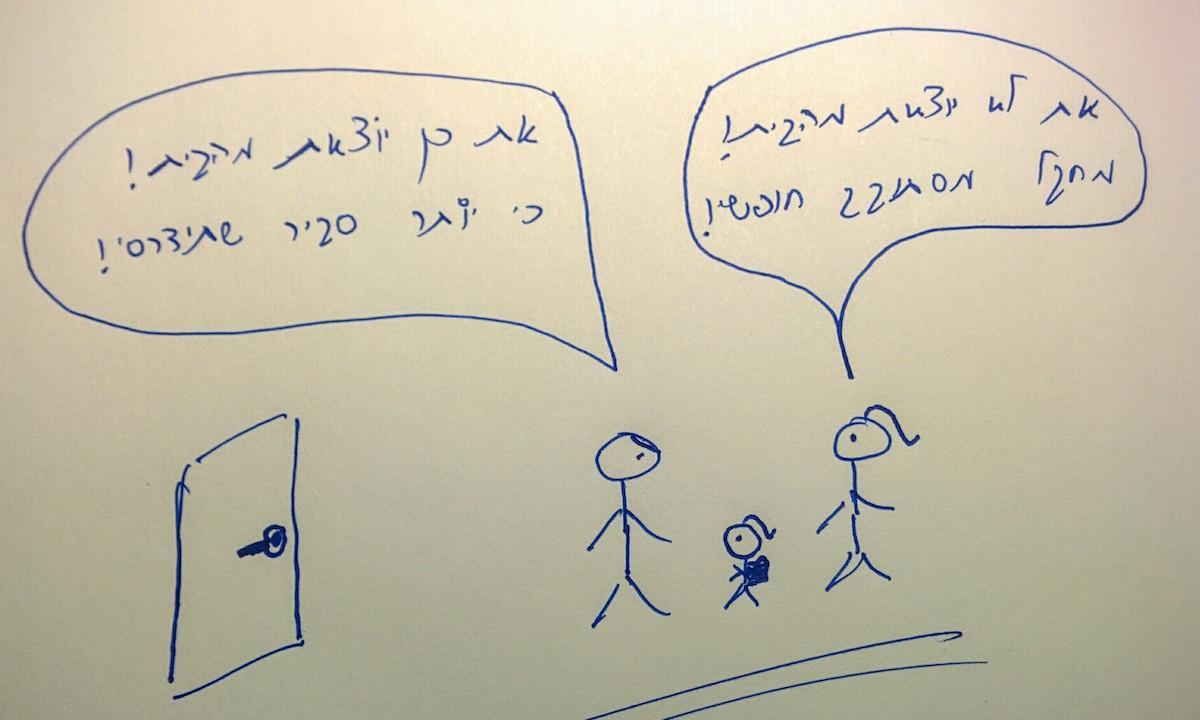 את לא יוצאת מהבית!
מחבל מסתובב חופשי!
את כן יוצאת מהבית!
כי יותר סביר שתידרסי!